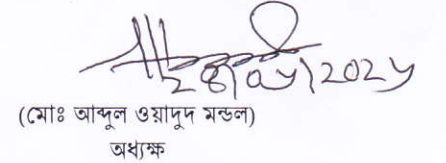 (মোঃ আব্দুল ওয়াদুদ মন্ডল)
অধ্যক্ষ